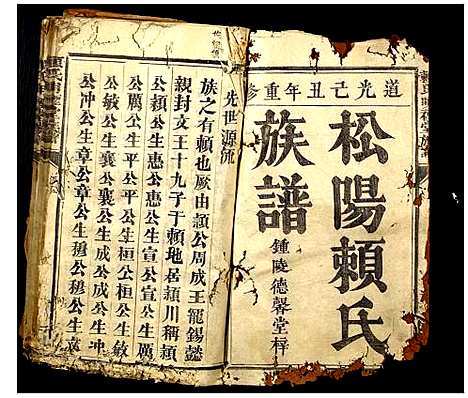 道光己丑年重修
松陽賴氏
族譜
鍾陵德馨堂梓
先世源流
族之有賴也厥由頴公周成王寵錫懿
親封文王十九子于賴地居頴川稱頴
公頴公生惠公惠公生宣公宣公生厲
公厲公生平公平公生桓公桓公生敏
公敏公生襄公襄公生成公成公生冲
公冲公生章公章公生穆公穆公生